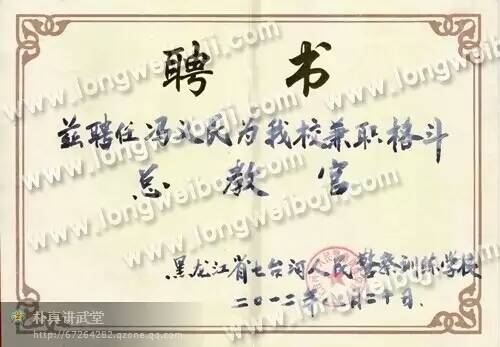 聘书
兹聘任冯义民为我校兼职格斗
总教官
黑龙江省七台河人民警察训练学校
二〇一二年八月二十日
www.longweiboji.com
朴真讲武堂
http://67264282.qzone.qq.com